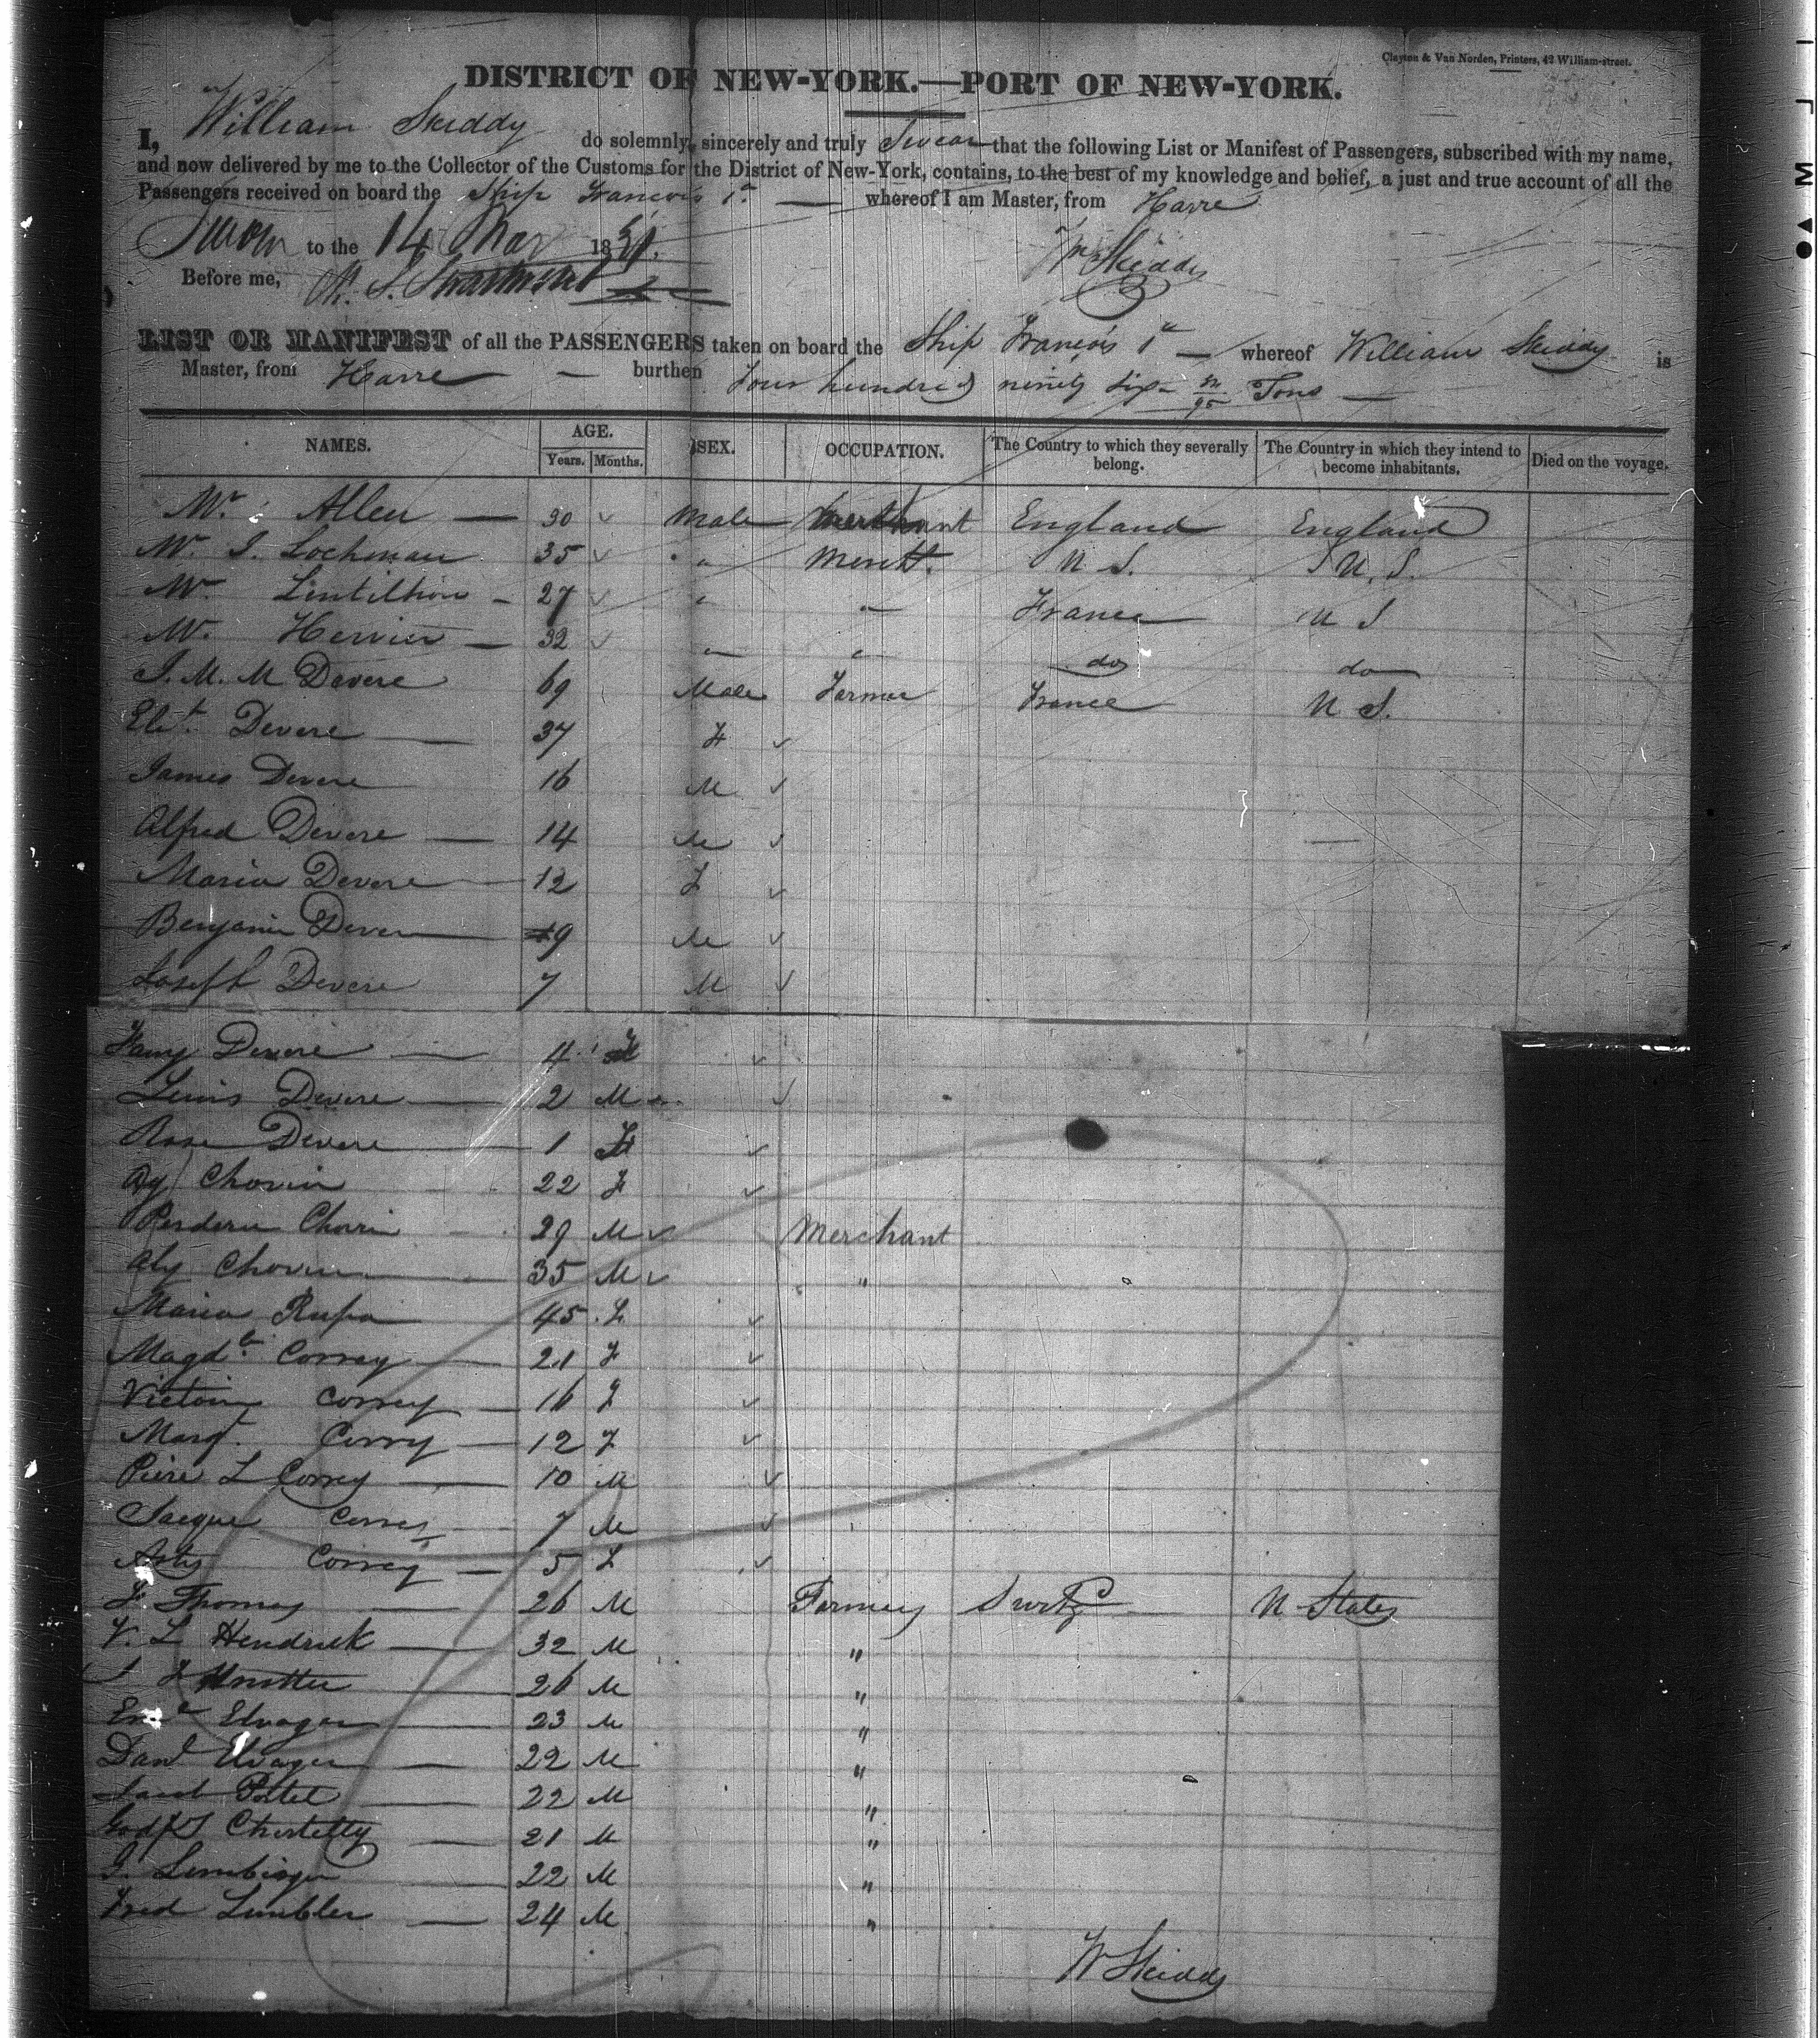 Clayton & Van Norden, Printers, 42 William-street.
DISTRICT OF NEW-YORK.—PORT OF NEW-YORK.
I, William Skiddy do solemnly, sincerely and truly Swear that the following List or Manifest of Passengers, subscribed with my name,
and now delivered by me to the Collector of the Customs for the District of New-York, contains, to the best of my knowledge and belief, a just and true account of all the
Passengers received on board the Ship Francois 1r — whereof I am Master, from Havre
Sworn to the 14 Mar 1831.
Wm Skiddy
Before me,
LIST OR MANIFEST of all the PASSENGERS taken on board the Ship François 1r — whereof William Skiddy is
Master, from Havre — burthen Four hundred ninety six /95 Tons —
NAMES. AGE. Years. Months. SEX. OCCUPATION. The Country to which they severally belong. The Country in which they intend to become inhabitants. Died on the voyage.
Mr. Allen — 30 Male Merchant England England
Mr. I. Lochman 35 " Mercht. U S. U. S.
Mr 27 " " France U S
Mr. Hervier — 32 " " do do
J. M. M Devere 69 Male Farmer France U S.
Elit. Devere — 37 F
James Devere 16 M
Alfred Devere — 14 M
Maria Devere — 12 F
Benjamin Devere — 9 M
Joseph Devere 7 M
Fany Devere — 4 F
Lewis Devere — 2 M
Rose Devere — 1 F
Chovin 22 F
Chovin 29 M Merchant
Aly Chovin 35 M "
Maria Rupa 45 F
Magdt. Correy — 21 F
Victoin Correy — 16 F
Margt. Correy — 12 F
Piere L Correy — 10 M
Jacque Correy 7 M
Correy — 5 F
F Thomas — 26 M Farmers Swirtz — U States
V. L Hendrick — 32 M "
26 M "
Eml Elvager — 23 M "
Danl Elvager — 22 M "
Jacob Patel — 22 M "
Godfd — 21 M "
22 M "
Fred Limbler — 24 M "
W Skiddy